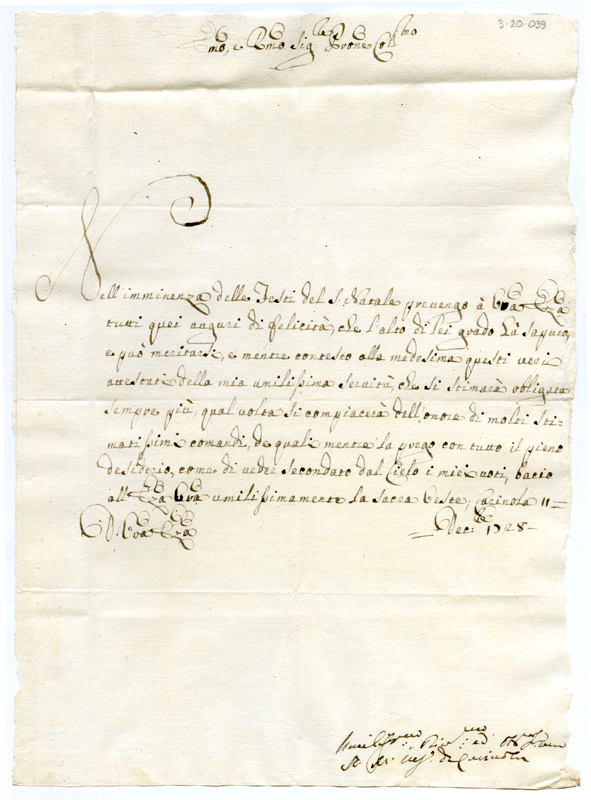 3-20-039
Em̃o, e Rm̃o Sig.re Prone Col.mo
Nell'imminenza delle Feste del S. Natale prevengo à Vr̃a Em̃za
tutti quei auguri di felicità, che l'alto di Lei grado hà saputo,
e può meritarsi, e mentre contesto alla medesima questi veri
attestati della mia umilissima servitù, che si stimarà obligata
sempre più, qual volta si compiacerà dell'onore di molti sti-
matissimi comandi, de quali mentre la prego con tutto il pieno
desiderio, come di veder secondato dal Cielo i miei voti, bacio
all'Em̃za Vr̃a umilissimamente la sacra Veste; Carinola 11
D. Vr̃a Em̃za
Dec.bre 1728
Umilissmo
Vesc.o di Carinola